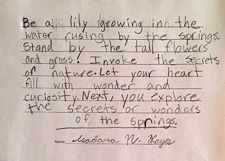 Be a lily growing in the
water rusing by the springs.
Stand by the tall flowers
and grass. Invoke the secrets
of nature. Let your heart
fill with wonder and
curiosity. Next, you explore
the secrets or wonders
of the springs.
- Isadora N.